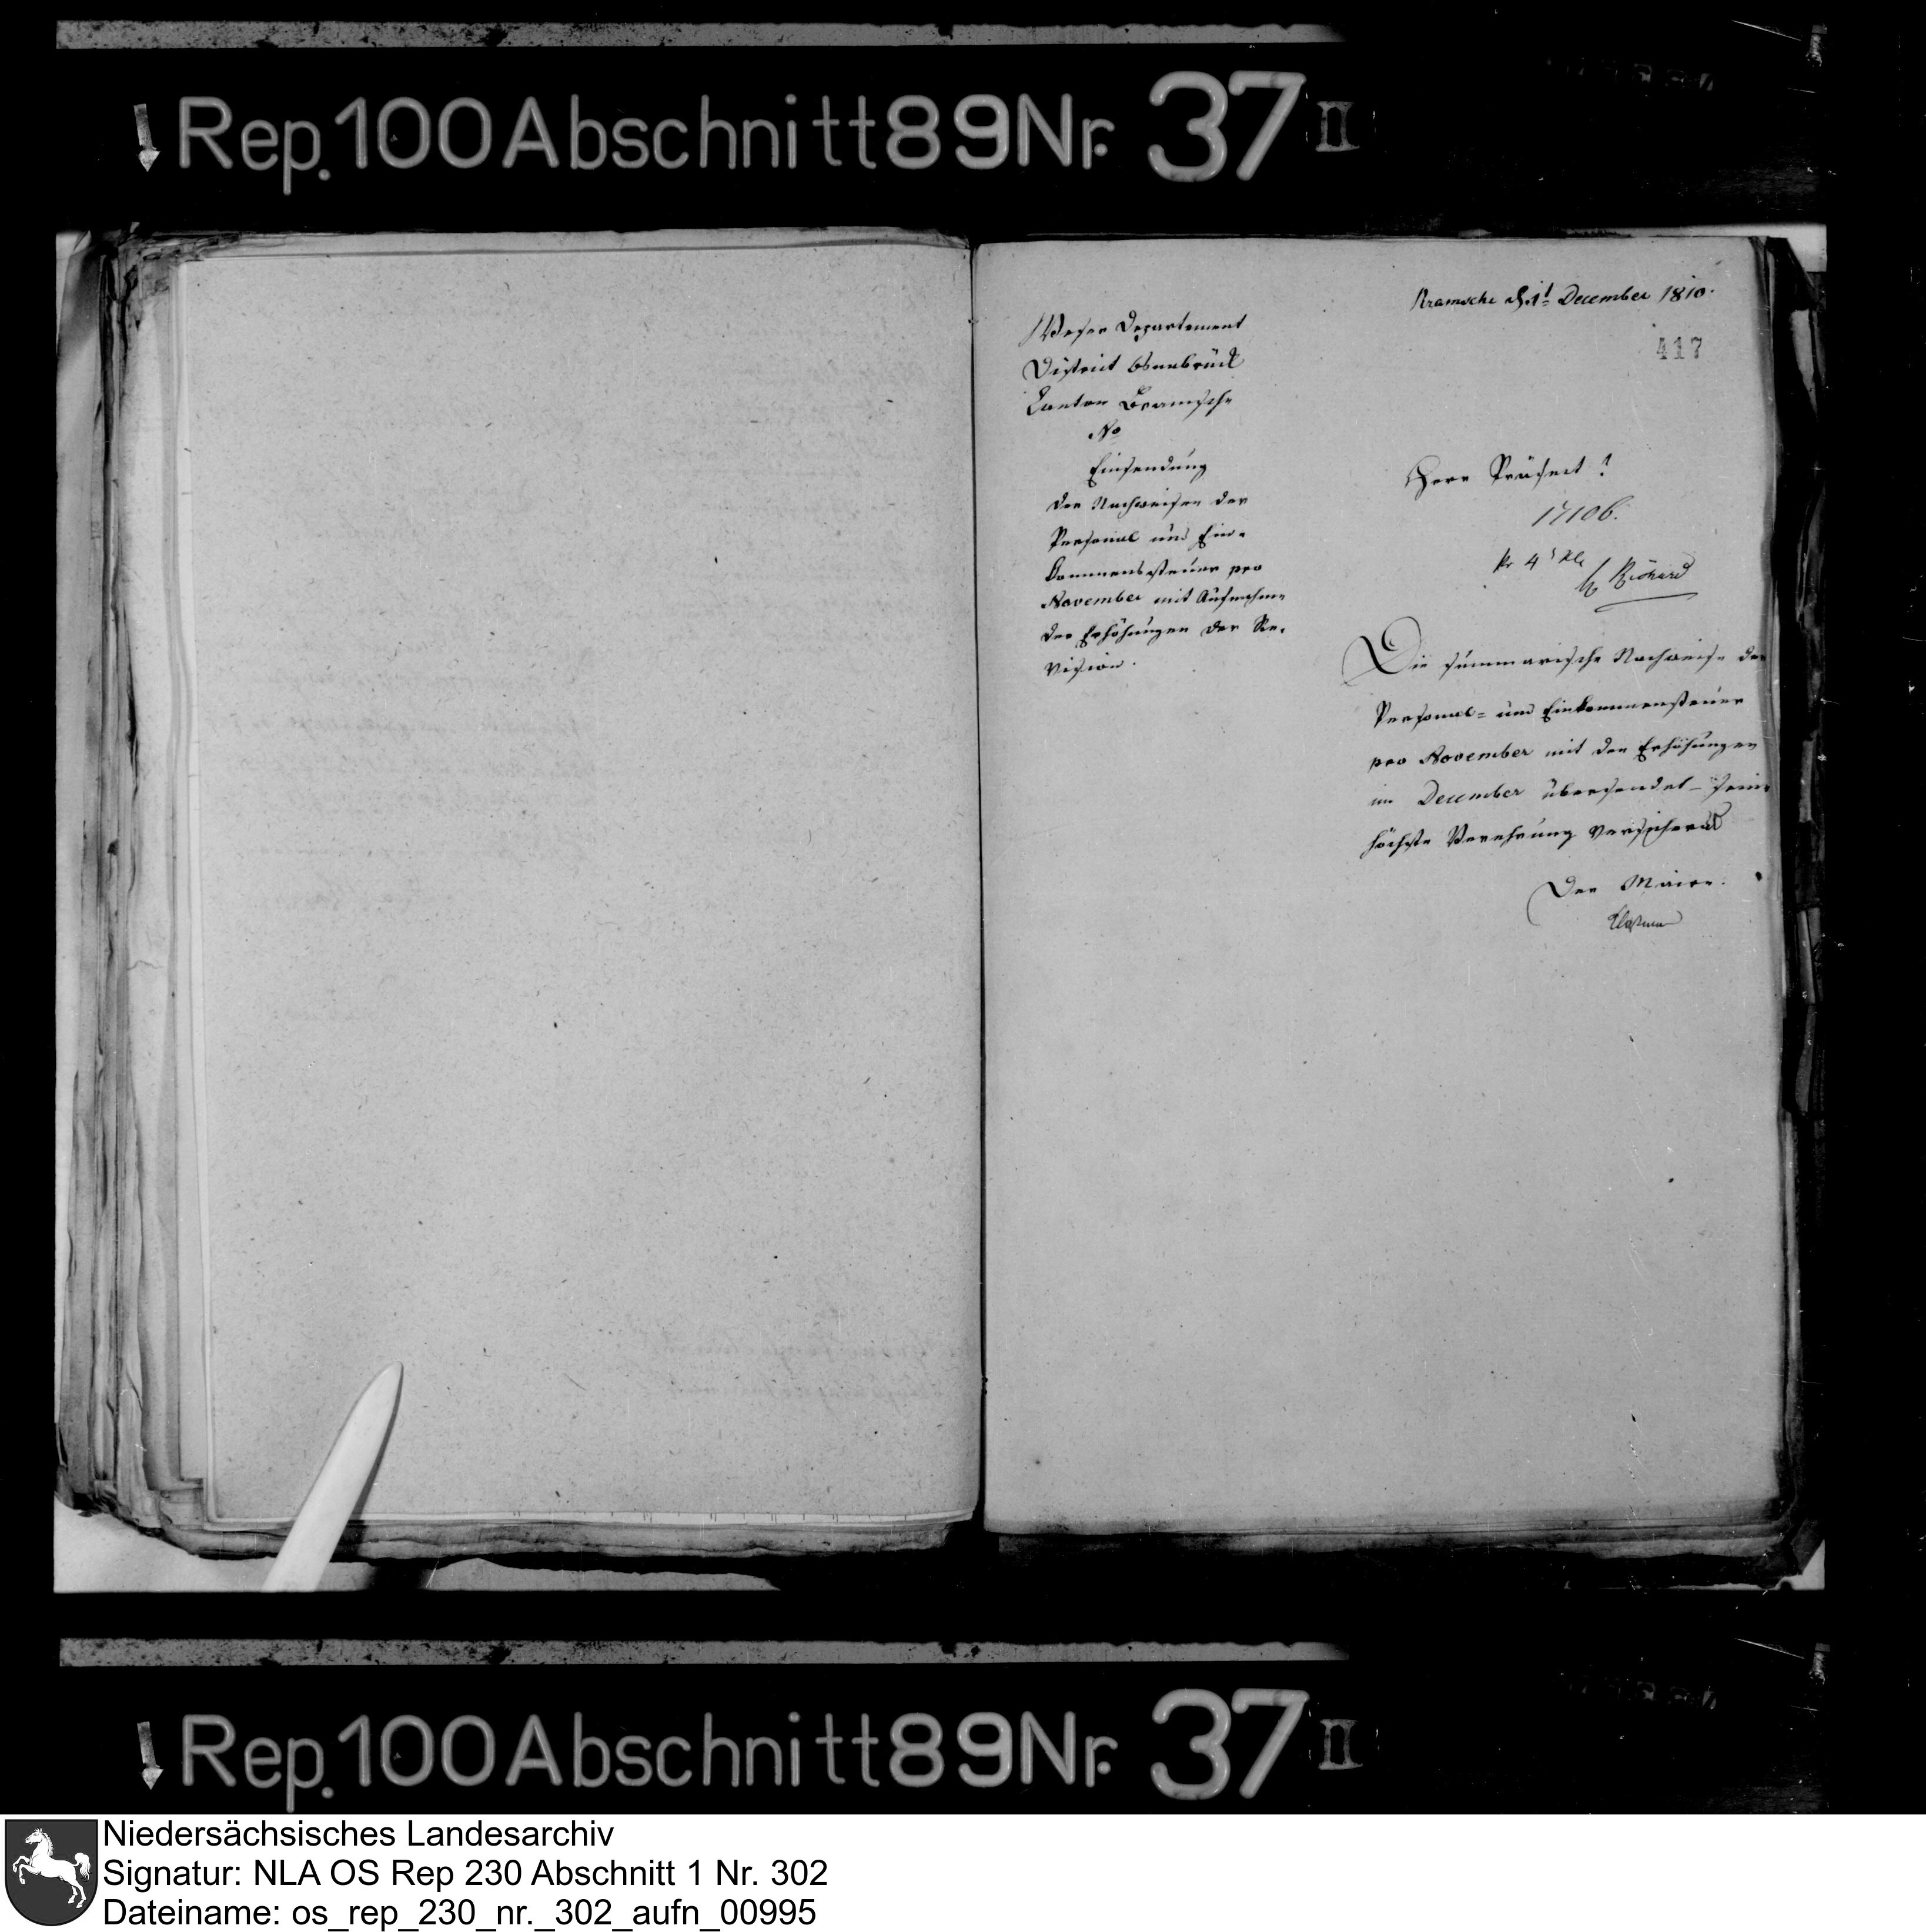 Rep. 100 Abschnitt 89 Nr. 37 II
Bramsche d. 1t December 1810.
417
Weser Departement
District Osnabrück
Canton Bramsche
No
Einsendung
der Nachweisen der
Personal und Ein-
kommensteuer pro
November mit Aufnahme
der Erhöhungen der Re-
vision.
Herr Präfect!
17106.
pr 4
Richard
Die summarische Nachweise der
Personal- und Einkommensteuer
pro November mit den Erhöhungen
im December übersendet
höchste Verehrung versichernd
Der Maire.
Rep. 100 Abschnitt 89 Nr. 37 II
Niedersächsisches Landesarchiv
Signatur: NLA OS Rep 230 Abschnitt 1 Nr. 302
Dateiname: os_rep_230_nr._302_aufn_00995